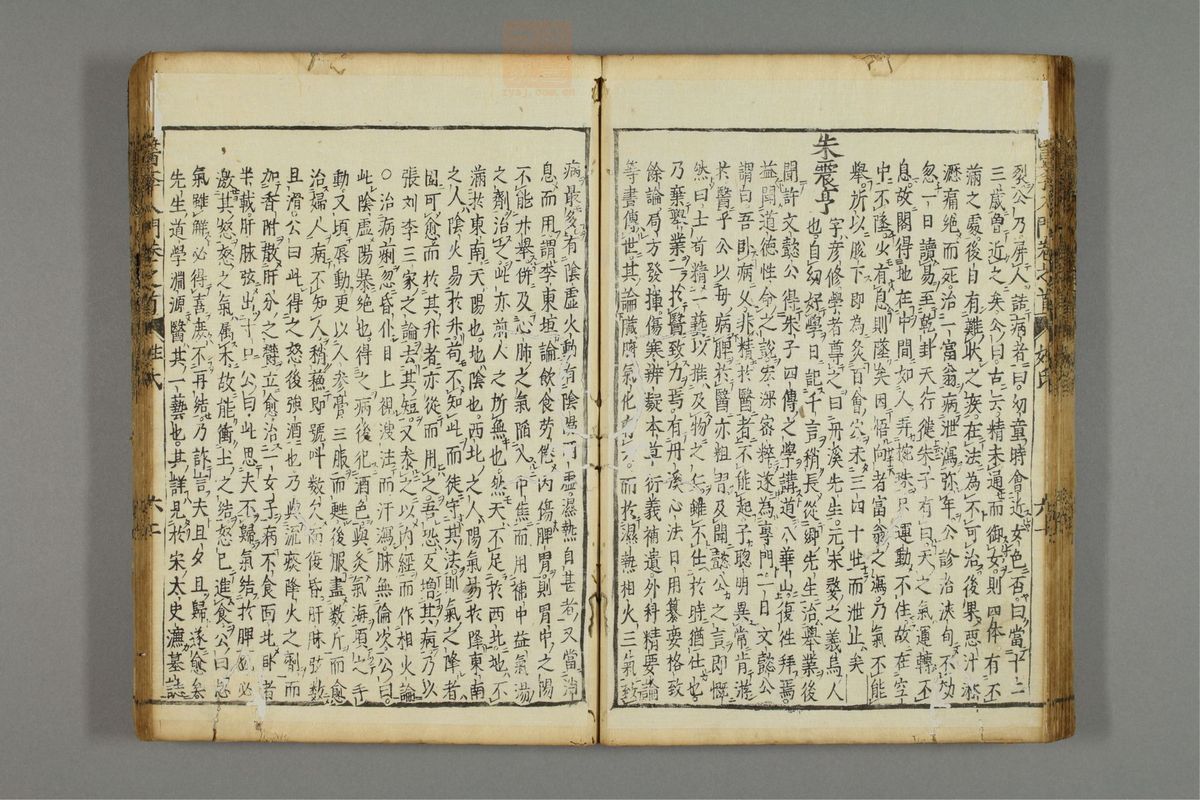 裂公乃屏人詰病者曰幼童時曾近女色否曰當十二
三歲曾近之矣公曰古云精未通而御女則四体有不
滿之處後日有難狀之疾在法為不可治後果惡汁淋
瀝痛絕而死治一富翁病泄瀉弥年公診治浹旬不効
忽一日讀易至乾卦天行徤朱子有曰天之氣運轉不
息故閣得地在中間如人弄椀珠只運動不住故在空
中不墜火有息則墜矣因悟向者富翁之瀉乃氣不能
舉所以脱下即為灸百會穴未三四十壯而泄止矣
朱震亨
字彥修學者尊之曰丹溪先生元末婺之義烏人
也自幼好學日記千言稍長從鄉先生治舉業後
聞許文懿公得朱子四傳之學講道八華山復徃拜焉
益聞道德性命之說宏深密粹遂為專門一日文懿公
謂曰吾卧病乆非精於醫者不能起子聰明異常肯遊
於醫乎公以母病脾於醫亦粗習及聞懿公之言即慨
然曰士苟精一藝以推及物之仁雖不仕於時猶仕也
乃棄舉業一於醫致力焉有丹溪心法日用纂要格致
餘論局方發揮傷寒辨疑本草衍義補遺外科精要論
等書傳世其論臓腑氣化 而於濕熱相火三氣致
病最多有陰虛火動有陰陽兩虛濕熱自甚者又當消
息而用謂李東垣論飲食劳倦內傷脾胃則胃中之陽
不能升舉併及心肺之氣陷入中焦而用補中益氣湯
之劑治之此亦前人之所無也然天不足於西北地不
滿於東南天陽也地陰也西北之人陽氣易於降東南
之人陰火易於升苟不知此而徒守其法則氣之降者
固可愈而於其升者亦從而用之吾恐反增其病乃以
張刘李三家之論去其短又参之以內經而作相火論
○治病痢忽昏仆目上視溲注而汗瀉脉無倫次公曰
此陰虛陽暴絕也得之病後犯酒色與灸氣海頃之手
動又頃唇動更以人参膏三服而甦後服盡数斤而愈
治婦人病不知人稍蘓即號呌数次而復昏肝脉弦数
且滑公曰此得之怒後強酒也乃與流痰降火之劑而
加香附散肝分之鬱立愈治一女子病不食面北卧者
半載肝脉弦出寸口公曰此思夫不歸氣結於脾也必
激其怒怒之氣屬木故能衝土之結怒已進食公曰思
氣雖觧必得喜庶不再結乃詐言夫且夕且歸遂愈矣
先生道學淵源醫其一藝也其詳見於宋太史濂墓誌